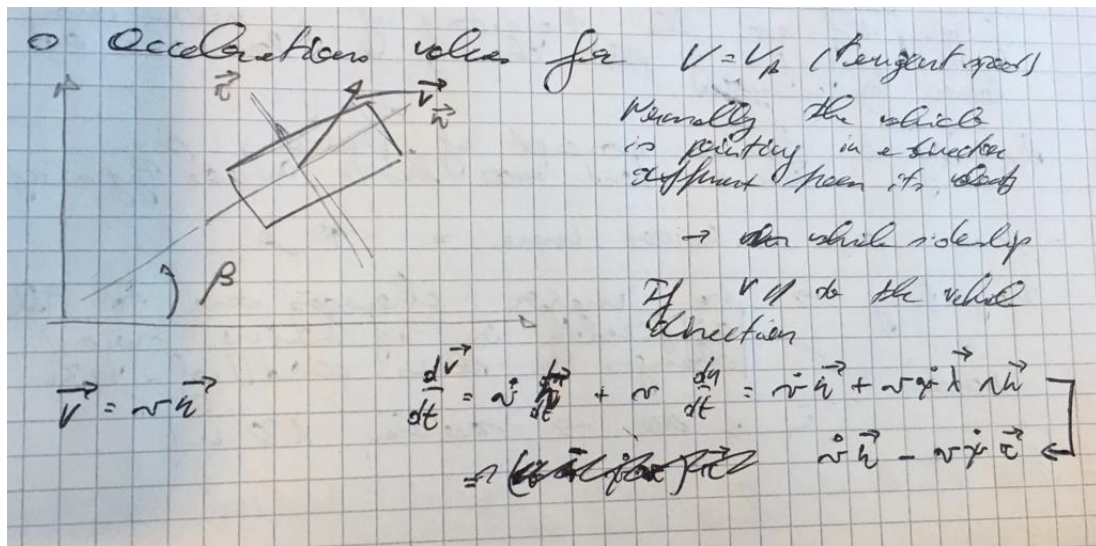 o Accelerations values for V = V// (tangent speed)
τ⃗
v⃗
n⃗
Normally the vehicle
is pointing in a direction
different from its
→ vehicle sideslip
β
If v // to the vehicle
direction
v⃗ = v n⃗
dv⃗/dt = v̇ n⃗ + v dn/dt = v̇ n⃗ + v ψ̇ λ⃗ ∧ n⃗
= v̇ n⃗ - v ψ̇ τ⃗